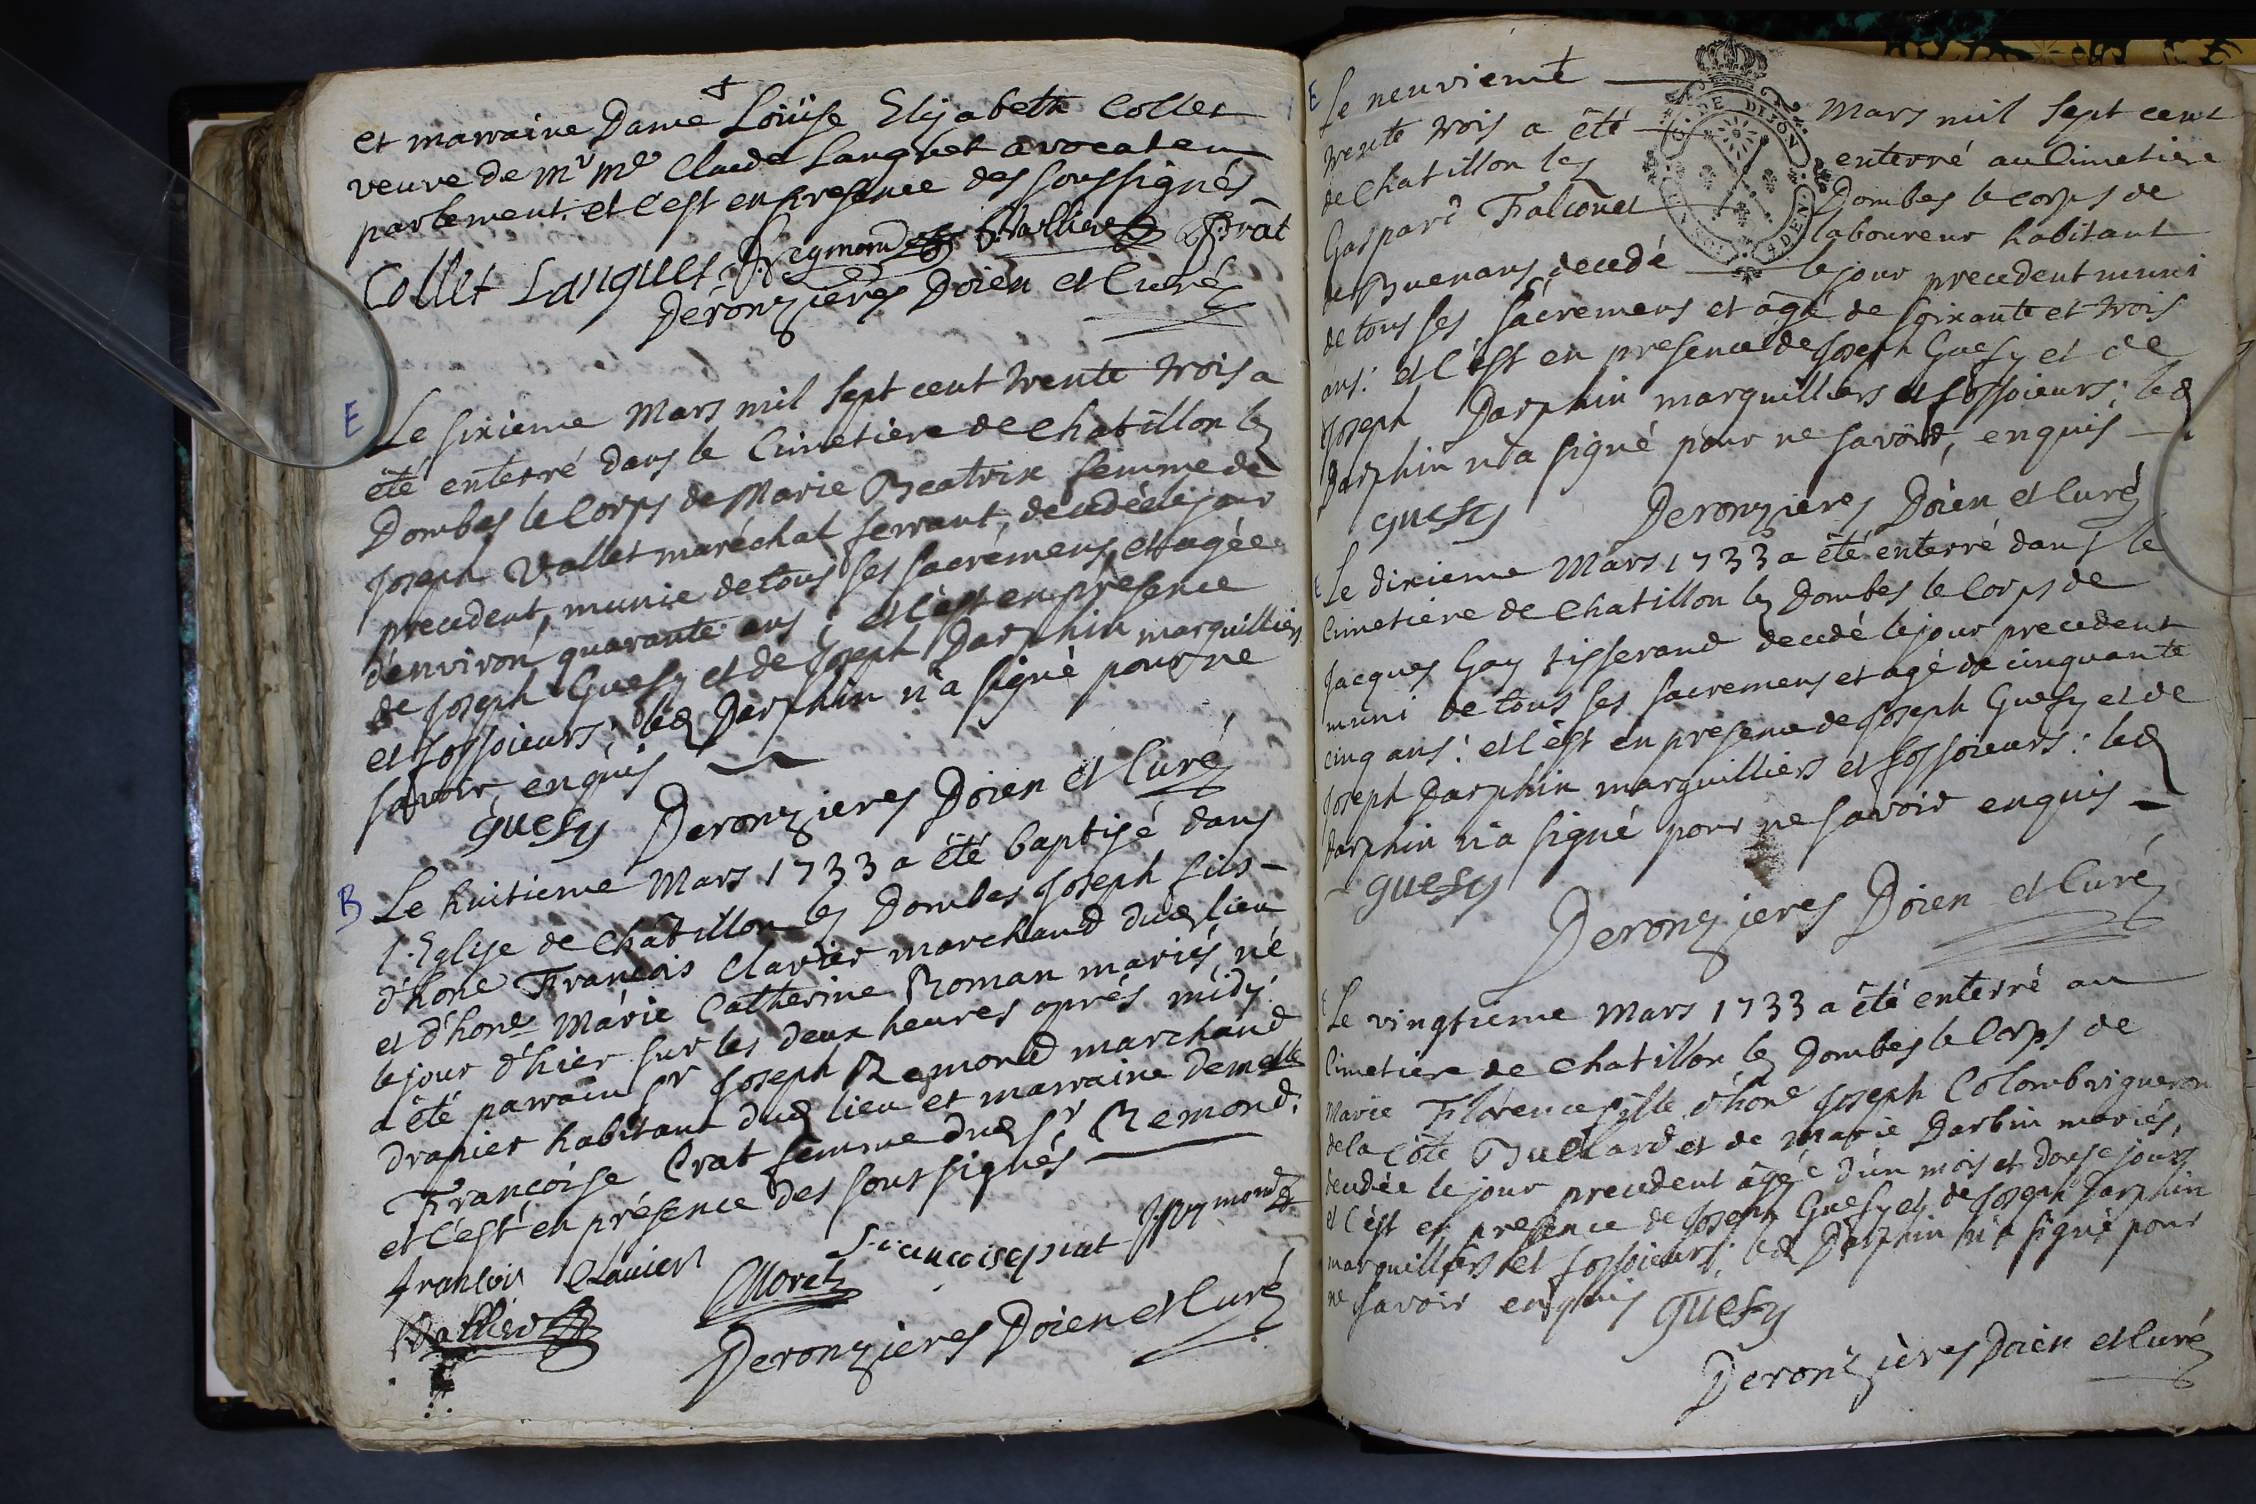 et marraine Dame Loüise Elisabeth Collet
veuve de mr me Claude Languet avocat en
parlement. et c'est en presence des soussignés
Collet Languet Regmond Vallier Prat
Deronzieres Doien et Curé
E
Le sixieme Mars mil sept cent trente trois a
été enterré dans le Cimetiere de Chatillon les
Dombes le Corps de Marie Beatrix femme de
Joseph Vallet maréchal ferrant, decedée le jour
precedent, munie de tous ses sacrémens, et agée
d'environ quarante ans; et c'est en présence
de Joseph Guesy et de Joseph Darphin marguilliers
et fossoieurs; led Darphin n'a signé pour ne
savoir, enquis
guesy Deronzieres Doien et Curé
B
Le huitieme Mars 1733 a été baptisé dans
l'Eglise de Châtillon les Dombes Joseph fils
d'hone François Clavier marchand dud lieu
et d'hone Marie Catherine Roman mariés, né
le jour d'hier sur les deux heures après midy.
a été parrain Sr Joseph Remond marchand
drapier habitant dud lieu et marraine demelle
Françoise Prat femme dud Sr Remond:
et c'est en présence des soussignés
françois Clavier francoise prat J Reymond
Vallier Moret
Deronzieres Doien et Curé
E
Le neuvieme Mars mil sept cent
trente trois a été enterré au Cimetiere
de Chatillon les Dombes le corps de
Gaspard Falconet laboureur habitant
de Buenans, decedé le jour precedent muni
de tous ses sácremens et âgé de soixante et trois
ans: et c'est en presence de Joseph Guesy et de
Joseph Darphin marguilliers et fossoieurs: led
Darphin n'a signé pour ne savoir, enquis
guesy Deronzieres Doien et Curé
E
Le dixieme Mars 1733 a été enterré dans le
Cimetiere de Chatillon les Dombes le Corps de
Jacques Gay tisserand decedé le jour precedent
muni de tous ses sacremens et agé de cinquante
cinq ans: et c'est en présence de Joseph Guesy et de
Joseph Darphin marguilliers et fossoieurs: led
Darphin n'a signé pour ne savoir enquis
guesy
Deronzieres Doien et Curé
E
Le vingtieme Mars 1733 a été enterré au
Cimetiere de Chatillon les Dombes le Corps de
Marie Florence fille d'hone Joseph Colomb vigneron
de la Côte Bullard et de Marie Darbin mariés,
decedée le jour precedent âgée d'un mois et douse jours
et c'est en presence de Joseph Guesy et de Joseph Darphin
marguilliers et fossoieurs; led Darphin n'a signé pour
ne savoir enquis guesy
Deronzières Doien et Curé